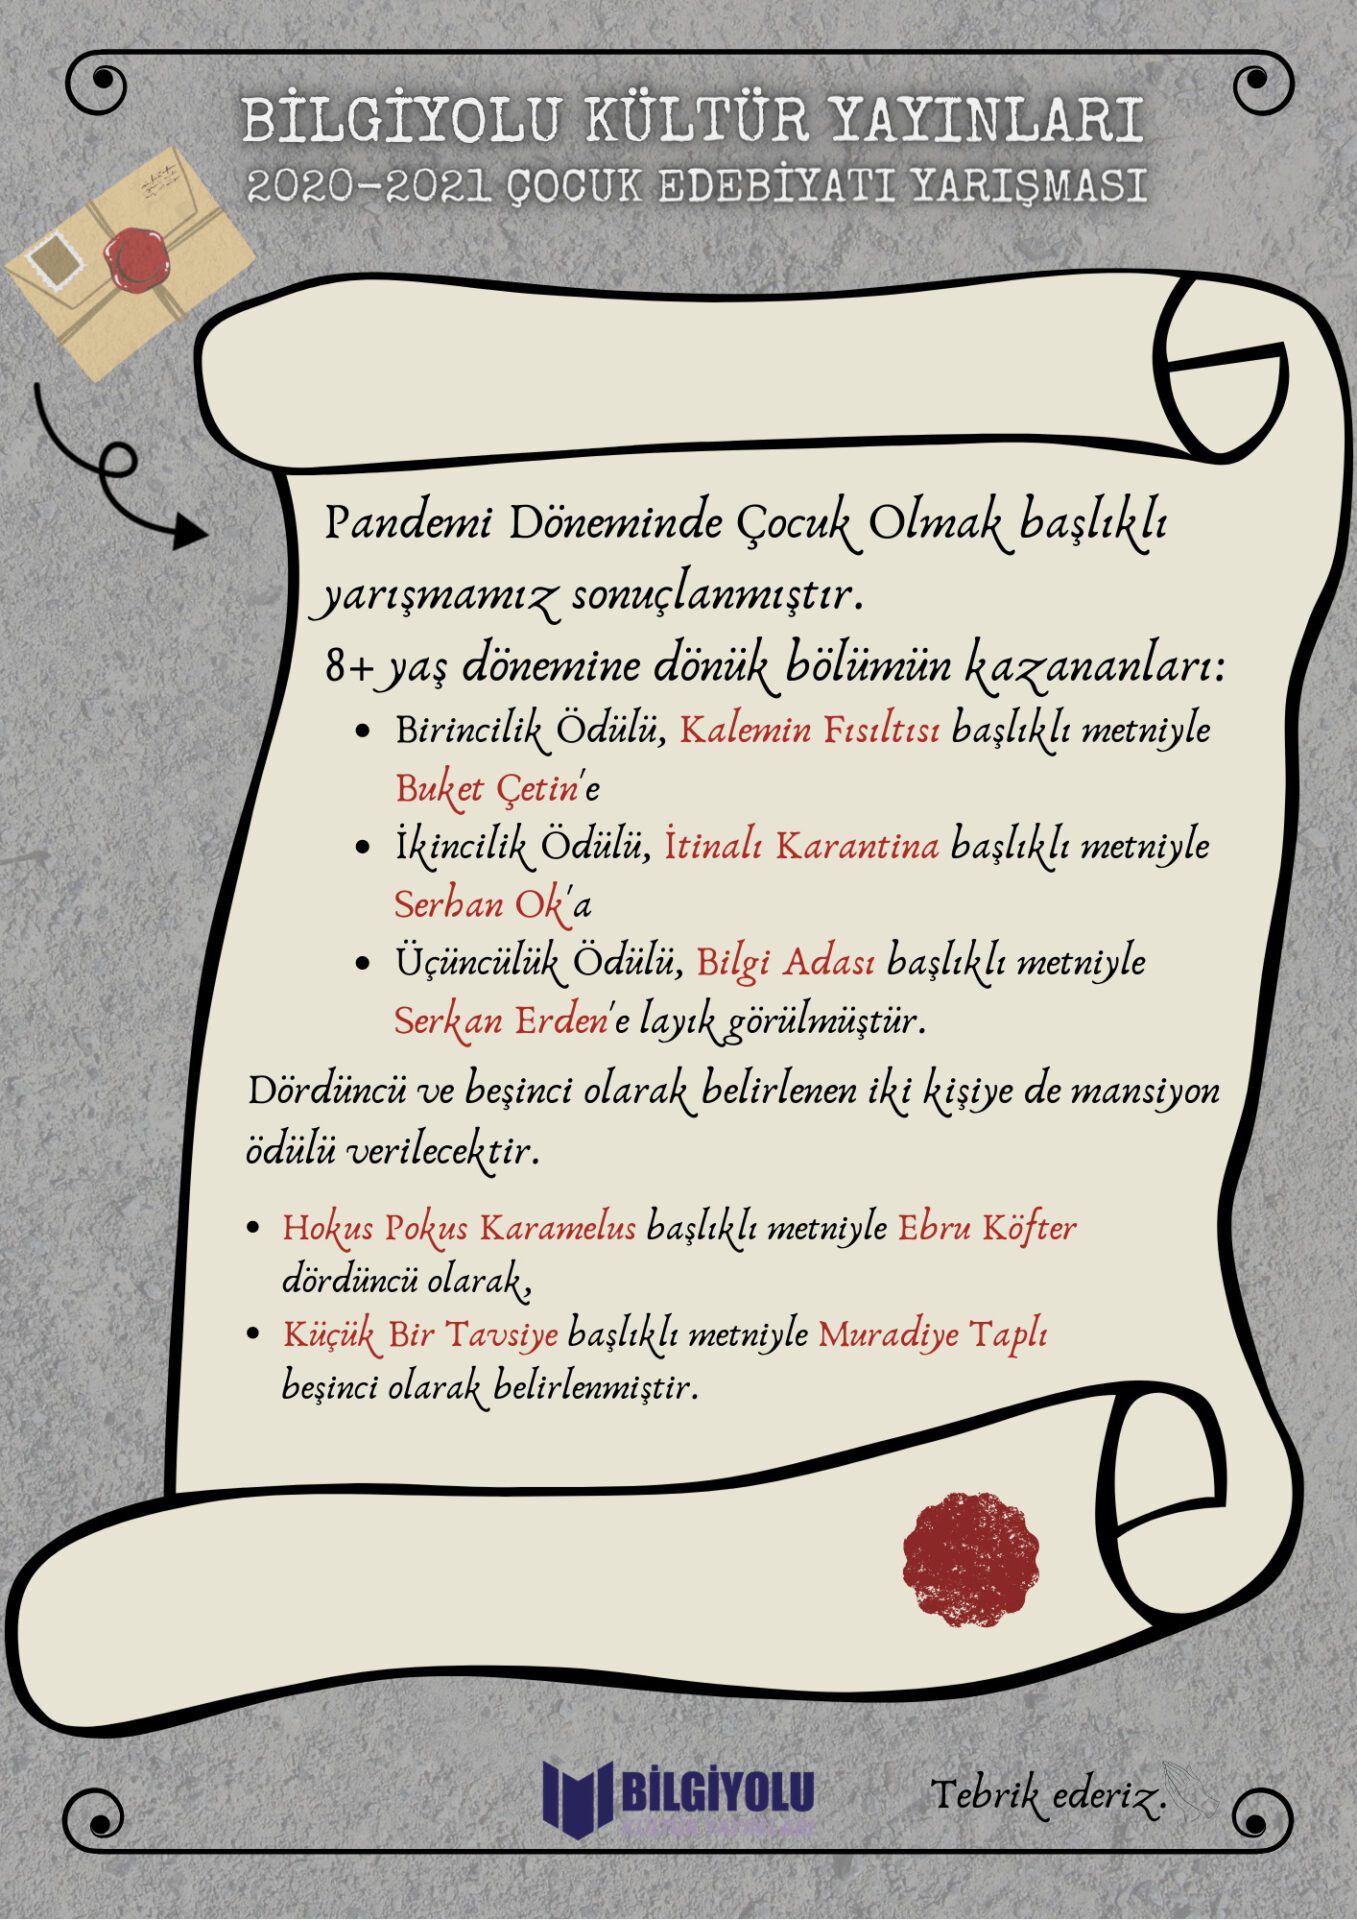 BİLGİYOLU KÜLTÜR YAYINLARI
2020-2021 ÇOCUK EDEBİYATI YARIŞMASI
Pandemi Döneminde Çocuk Olmak başlıklı
yarışmamız sonuçlanmıştır.
8+ yaş dönemine dönük bölümün kazananları:
• Birincilik Ödülü, Kalemin Fısıltısı başlıklı metniyle
Buket Çetin'e
• İkincilik Ödülü, İtinalı Karantina başlıklı metniyle
Serhan Ok'a
• Üçüncülük Ödülü, Bilgi Adası başlıklı metniyle
Serkan Erden'e layık görülmüştür.
Dördüncü ve beşinci olarak belirlenen iki kişiye de mansiyon
ödülü verilecektir.
• Hokus Pokus Karamelus başlıklı metniyle Ebru Köfter
dördüncü olarak,
• Küçük Bir Tavsiye başlıklı metniyle Muradiye Taplı
beşinci olarak belirlenmiştir.
BİLGİYOLU
KÜLTÜR YAYINLARI
Tebrik ederiz.